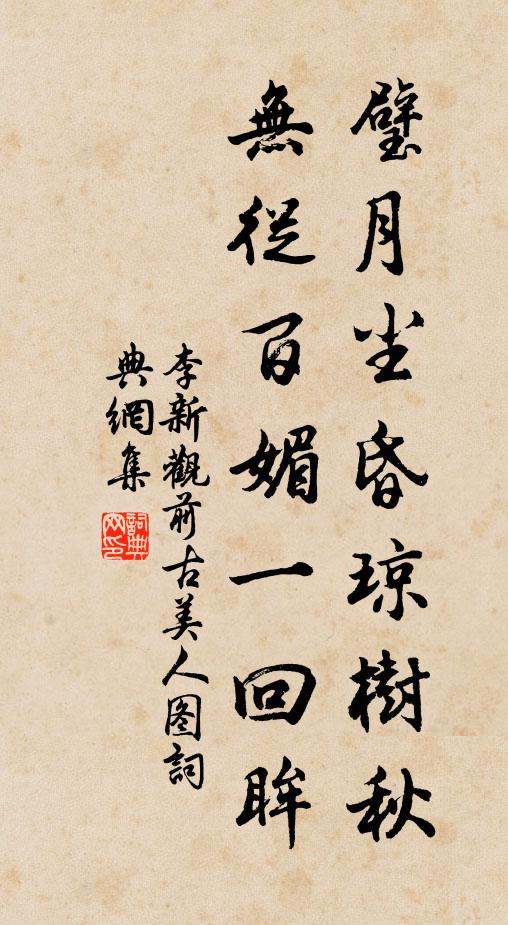 璧月尘昏琼樹秋
無從百媚一回眸
李新觀前古美人图詞
典網集
詞典
网印